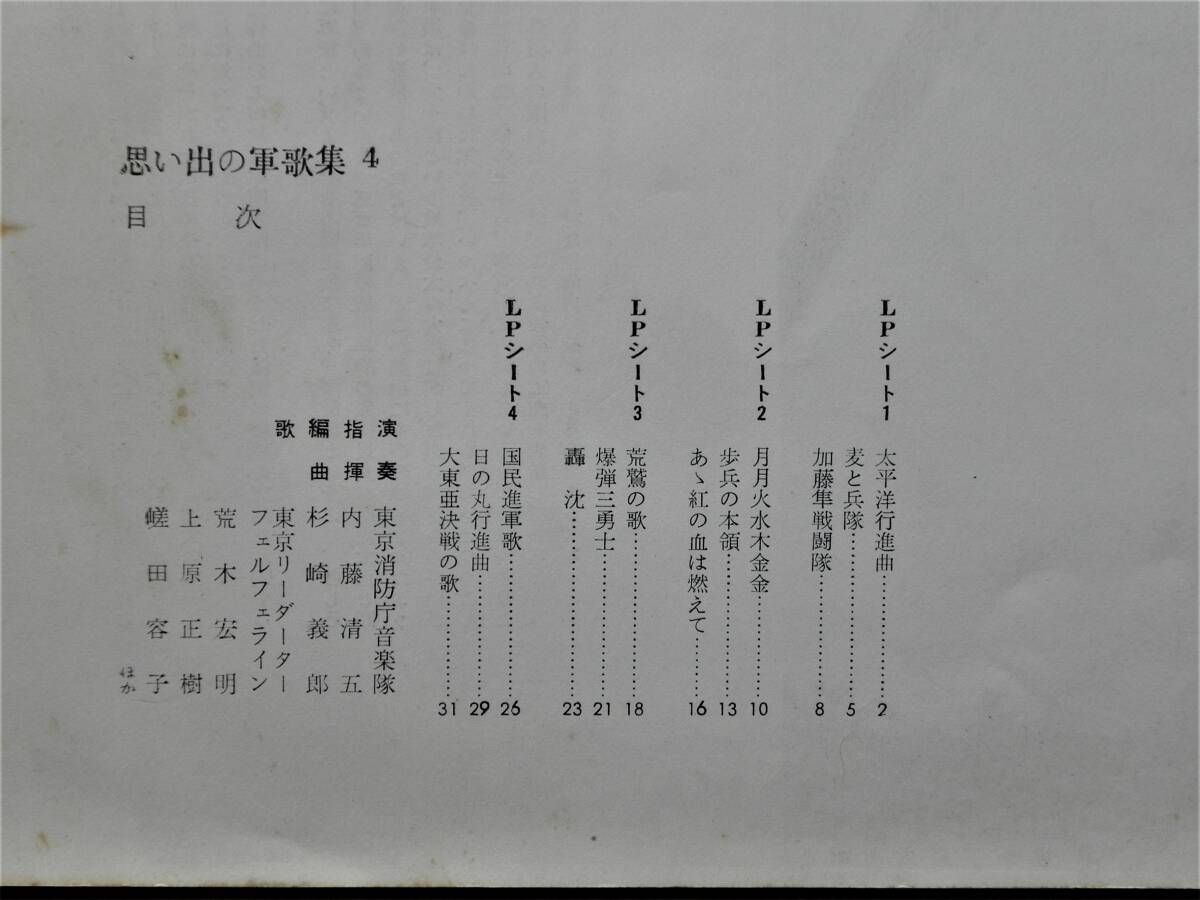 思い出の軍歌集 4
目次
LPシート1
太平洋行進曲…………2
麦と兵隊…………5
加藤隼戦闘隊…………8
LPシート2
月月火水木金金…………10
歩兵の本領…………13
あゝ紅の血は燃えて…………16
LPシート3
荒鷲の歌…………18
爆弾三勇士…………21
轟沈…………23
LPシート4
国民進軍歌…………26
日の丸行進曲…………29
大東亜決戦の歌…………31
演奏 東京消防庁音楽隊
指揮 内藤清五
編曲 杉崎義郎
歌 東京リーダーター
フェルフェライン
荒木宏明
上原正樹
嵯田容子 ほか